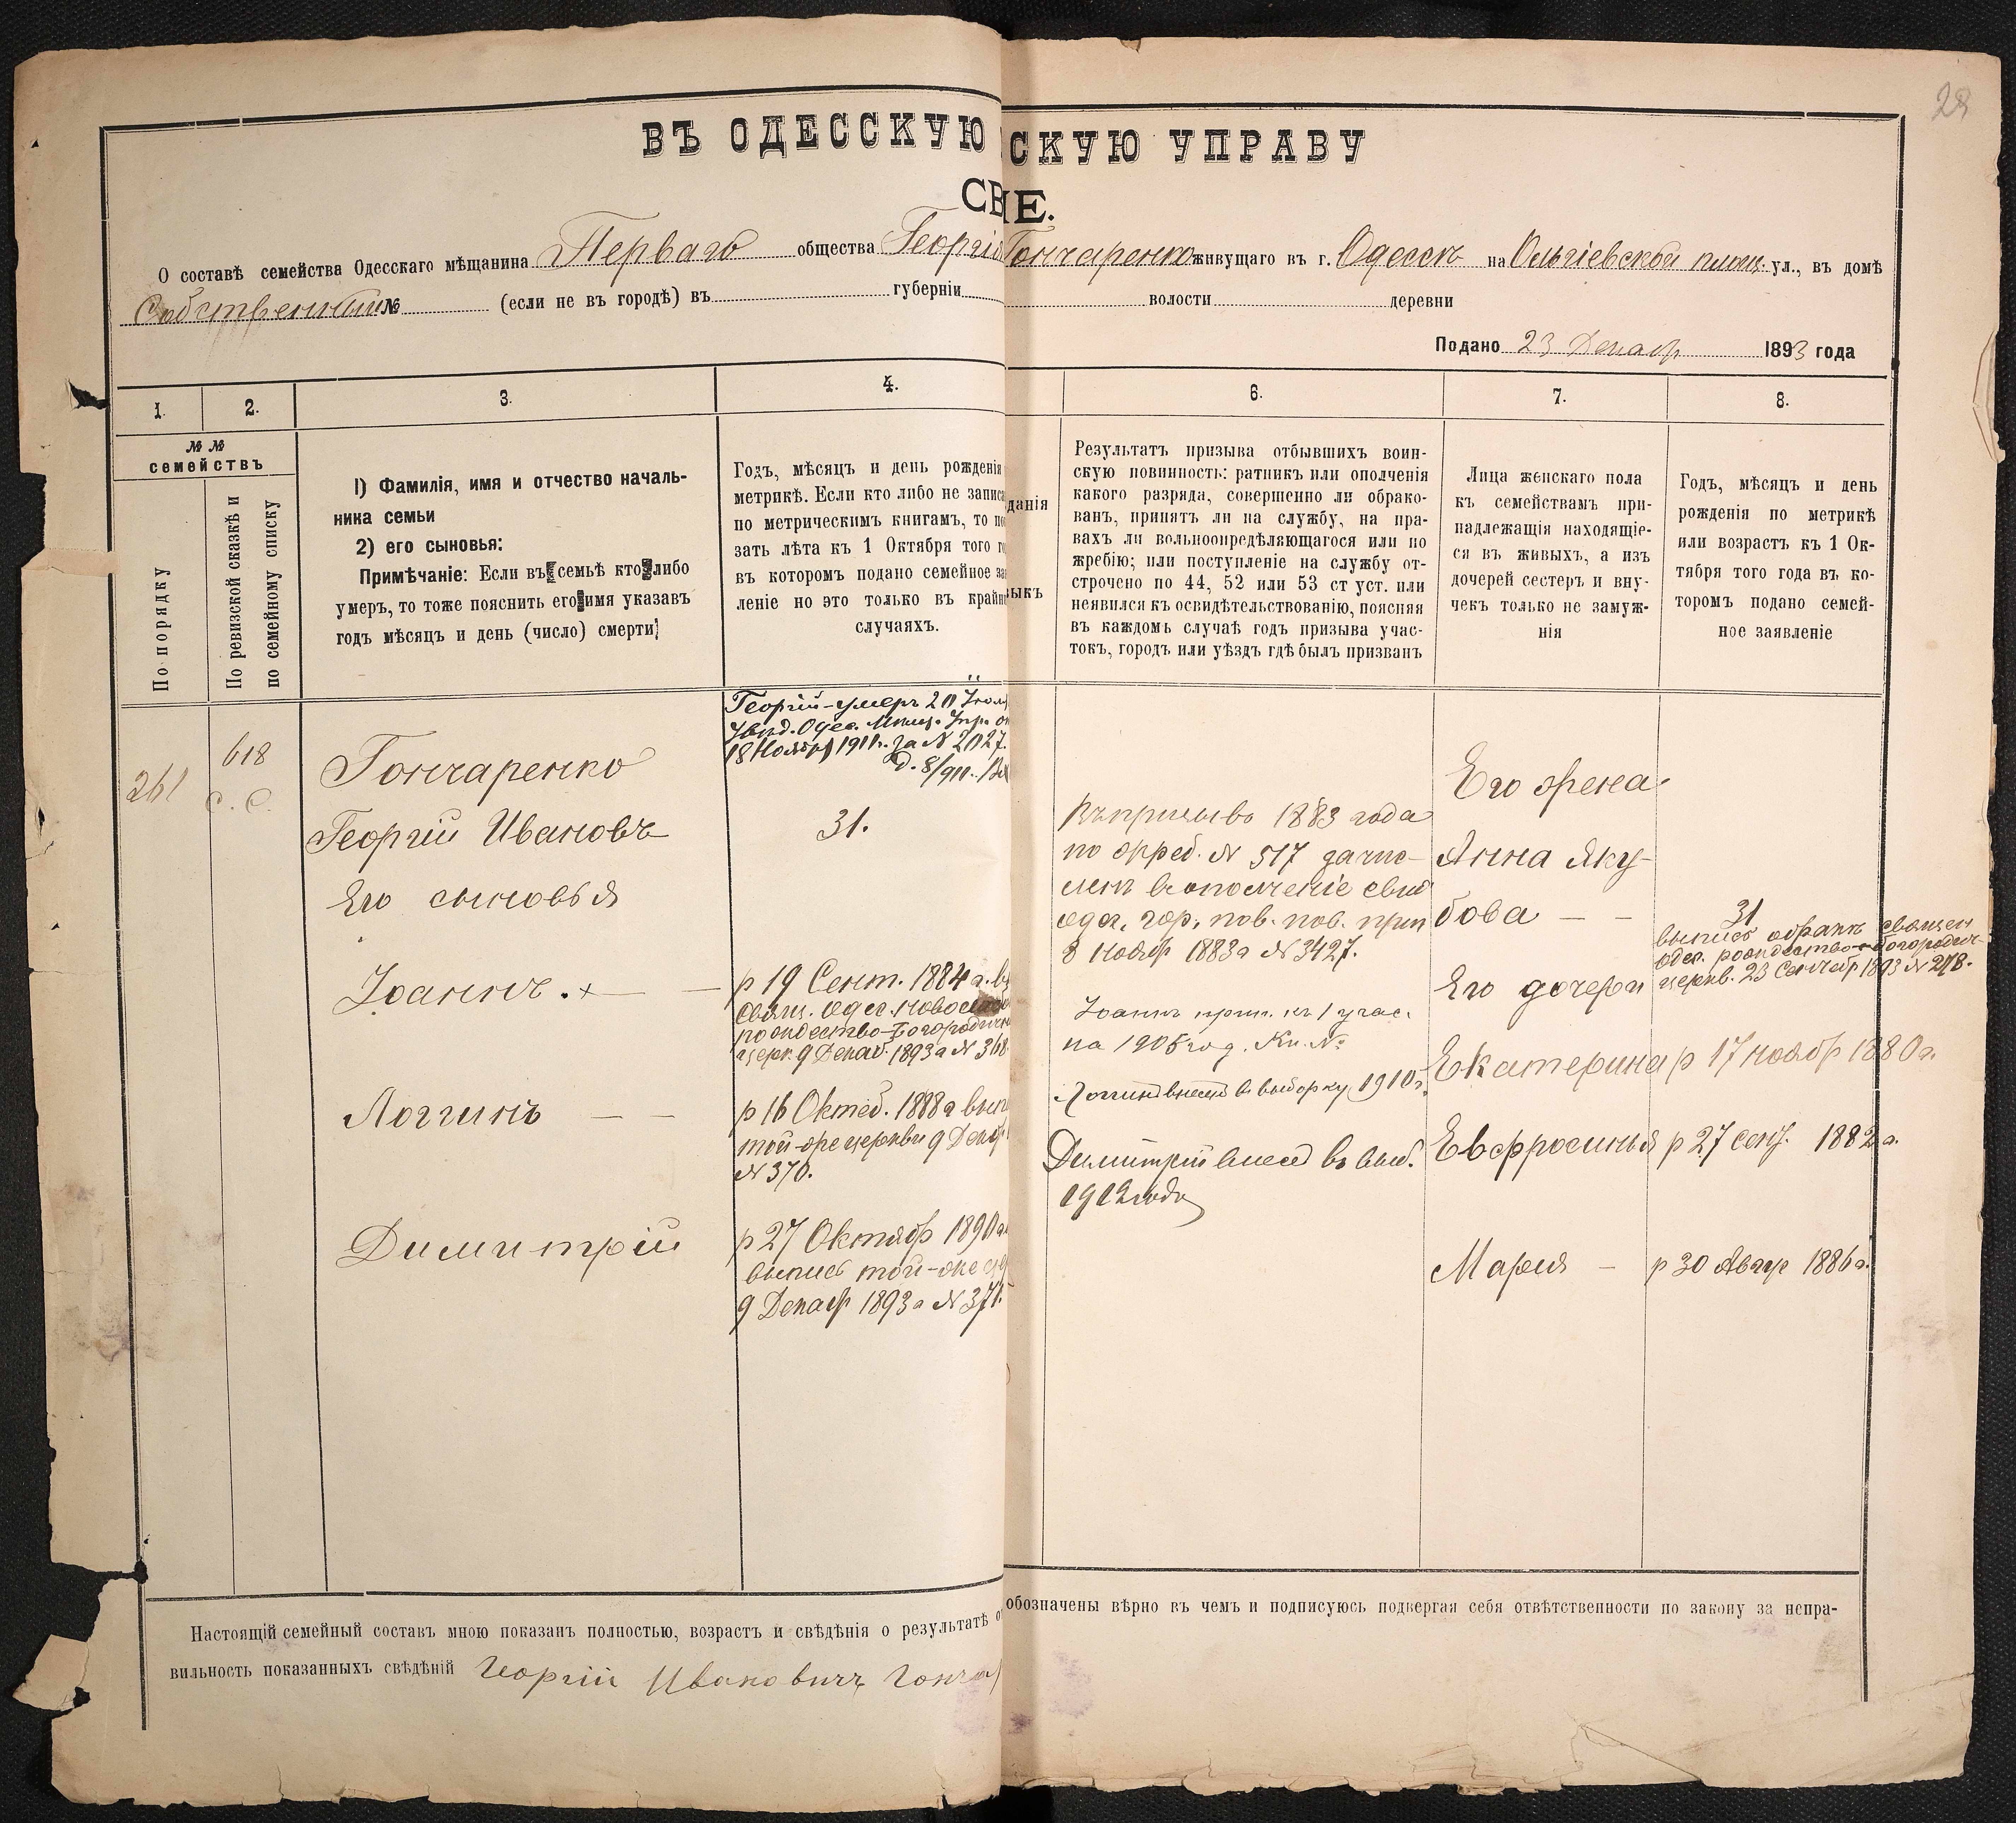 28
ВЪ ОДЕССКУЮ СКУЮ УПРАВУ
СВ IE.
О составѣ семейства Одесскаго мѣщанина Перваго общества Георгія Гончаренко живущаго въ г. Одессѣ на Ольгіевской площ. ул., въ домѣ
Собственный № (если не въ городѣ) въ губерніи волости деревни
Подано 23 Декабр 1893 года
1. 2. 3. 4. 6. 7. 8.
№ №
семействъ
По порядку
По ревизской сказкѣ и
по семейному списку
1) Фамилія, имя и отчество началь-
ника семьи
2) его сыновья:
Примѣчаніе: Если въ семьѣ кто либо
умеръ, то тоже пояснить его имя указавъ
годъ мѣсяцъ и день (число) смерти
Годъ, мѣсяцъ и день рожденія
метрикѣ. Если кто либо не записа
по метрическимъ книгамъ, то по
зать лѣта къ 1 Октября того го
въ которомъ подано семейное за
леніе но это только въ крайн
случаяхъ.
данія
зыкъ
Результатъ призыва отбывшихъ воин-
скую повинность: ратникъ или ополченія
какого разряда, совершенно ли обрако-
ванъ, принятъ ли на службу, на пра-
вахъ ли вольноопредѣляющагося или по
жребію; или поступленіе на службу от-
строчено по 44, 52 или 53 ст уст. или
неявился къ освидѣтельствованію, поясняя
въ каждомъ случаѣ годъ призыва учас-
токъ, городъ или уѣздъ гдѣ былъ призванъ
Лица женскаго пола
къ семействамъ при-
надлежащія находящіе-
ся въ живыхъ, а изъ
дочерей сестеръ и вну-
чекъ только не замуж-
нія
Годъ, мѣсяцъ и день
рожденія по метрикѣ
или возрастъ къ 1 Ок-
тября того года въ ко-
торомъ подано семей-
ное заявленіе
261
618
с. с.
Гончаренко
Георгій Ивановъ
Его сыновья
Іоаннъ . х — —
Логгинъ — —
Димитрій
Георгій - умеръ 20 Іюл
Увѣд. Одес. Мѣщ. Упр. о
18 Ноябр 1911г. за N 2027.
31.
р 19 Сент. 1884 г.
свящ. Одес. Ново
рождество-Богородичн
церк. 9 Декаб. 1893 г N 368
р 16 Октеб. 1888 г вып
той-же церкви 9 Декаб
N 370.
р 27 Октябр 1890 г
выпись той-же
9 Декабр 1893 г N 371.
Въ призывъ 1883 года
по жреб. N 517 зачис-
ленъ в ополченіе свид
Одес. гор. пов. прис
8 ноябр 1883 г N 3427.
Іоаннъ прип. къ 1 учас.
на 1905 год. Кн. №
Логгинъ внесен въ выборку 1910 г.
Димитрій внесен въ выб.
1912 года
Его жена
Анна Яку-
бова — —
Его дочери
Екатерина
Евфросинья
Марія —
31
выпись священ
Одес. рождество-богородич-
церкв. 23 Сентебр 1893 N 278.
р 17 ноябр 1880 г.
р 27 сент. 1882 г.
р 30 Авгус 1886 г.
Настоящій семейный составъ мною показанъ полностью, возрастъ и свѣдѣнія о результатѣ о обозначены вѣрно въ чемъ и подписуюсь подвергая себя отвѣтственности по закону за непра-
вильность показанныхъ свѣдѣній Георгій Ивановичъ Гонча